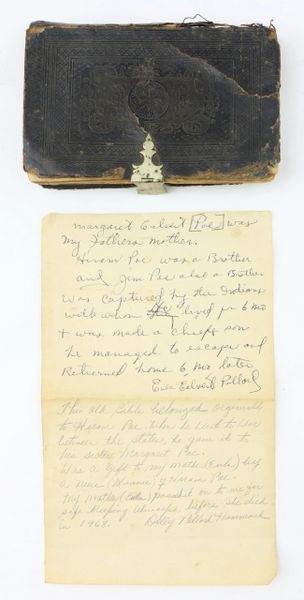 Margaret Calvert [Poe] was
My Fathers Mother.
Hiram Poe was a Brother
and Jim Poe also a Brother
was captured by the Indians
with whom he lived for 6 Mo
& was made a chiefs son
he managed to escape and
Returned home 6 Mo later
Eva Calvert Pollard
This old Bible belonged originally
to Hiram Poe. When he went to War
between the states, he gave it to
his sister Margaret Poe.
Was a gift to my mother (Eula) by
a niece (Minnie) of Hiram Poe.
My Mother (Eula) passed it on to me for
safe keeping before she died
in 1968. Pollard Hammack